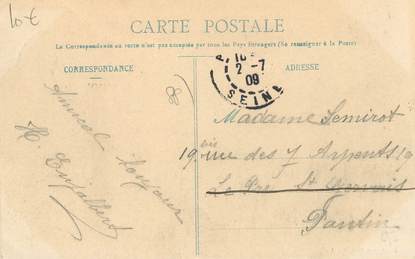 10€
CARTE POSTALE
La Correspondance au recto n'est pas acceptée par tous les Pays étrangers (Se renseigner à la Poste)
CORRESPONDANCE
ADRESSE
2-7
09
SEINE
Amical
toujours
Madame Semirot
19 rue des 7 Arpents 19
Le Pré St Gervais
Pantin